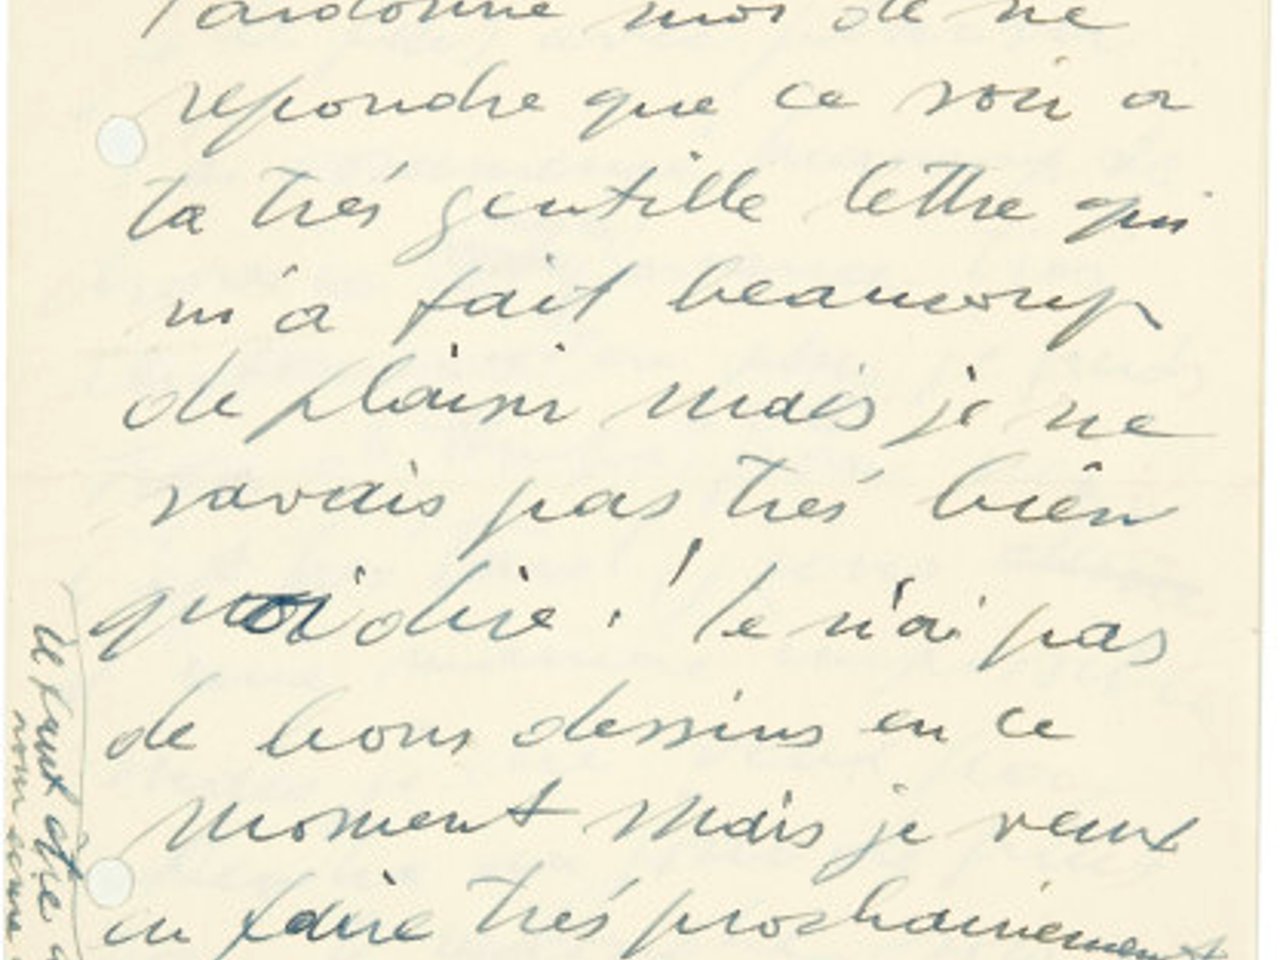 Pardonne moi de ne
repondre que ce soir a
ta trés gentille lettre qui
m'a fait beaucoup
de plaisir mais je ne
savais pas trés bien
quoi dire ! Je n'ai pas
de bons dessins en ce
moment mais je veux
en faire trés prochainement
le faut être